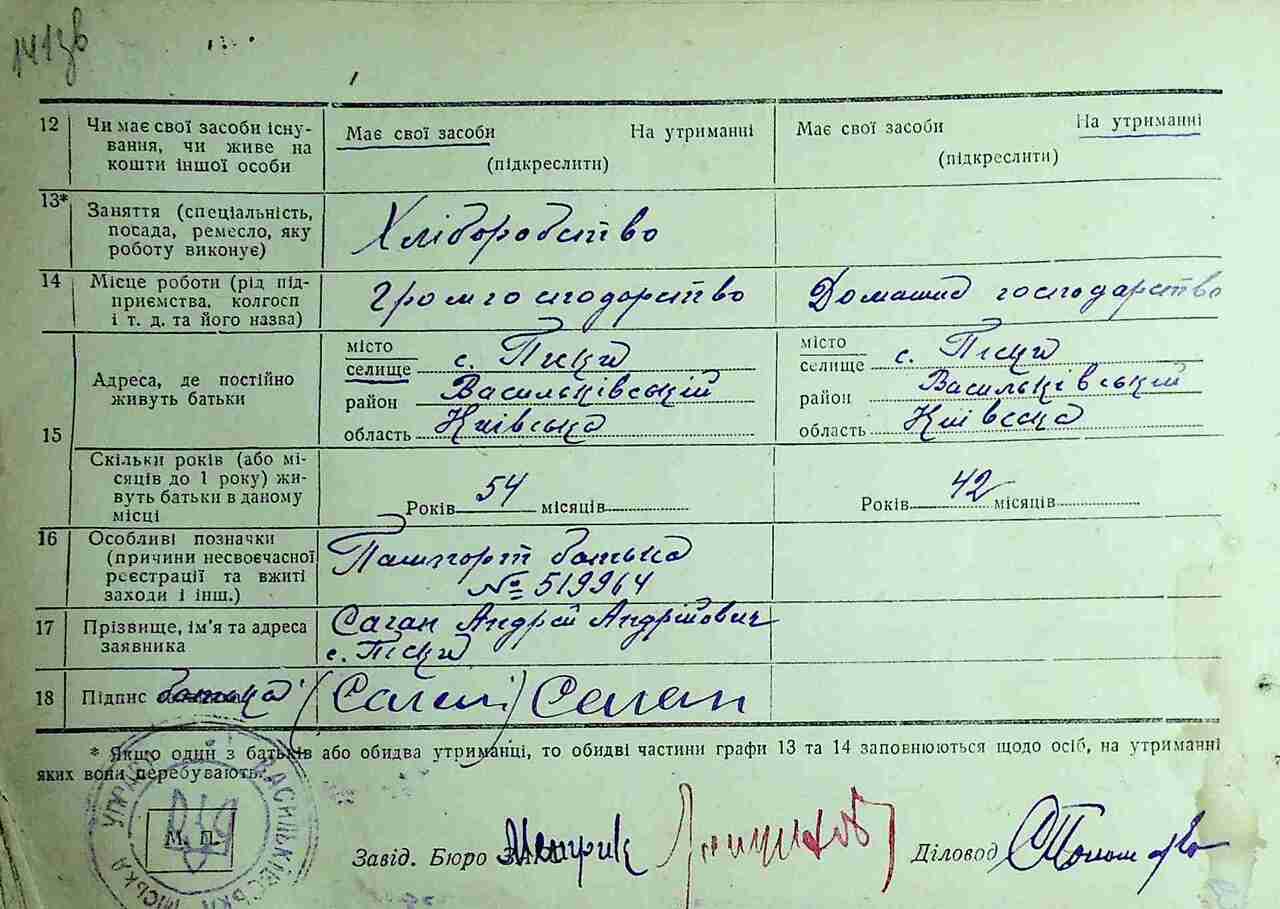 141зв
12 Чи має свої засоби існування, чи живе на кошти іншої особи
Має свої засоби На утриманні
(підкреслити)
Має свої засоби На утриманні
(підкреслити)
13* Заняття (спеціальність, посада, ремесло, яку роботу виконує)
Хліборобство
14 Місце роботи (рід підприємства, колгосп і т. д. та його назва)
Громгосподарство
Домашнє господарство
15 Адреса, де постійно живуть батьки
місто
селище с. Піски
район Васильківський
область Київська
місто
селище с. Піски
район Васильківський
область Київска
Скільки років (або місяців до 1 року) живуть батьки в даному місці
Років 54 місяців
Років 42 місяців
16 Особливі позначки (причини несвоєчасної реєстрації та вжиті заходи і інш.)
Пашпорт батька
№ 519964
17 Прізвище, ім'я та адреса заявника
Саган Андрій Андрійович
с. Піски
18 Підпис батька (Саган) Саган
* Якщо один з батьків або обидва утриманці, то обидві частини графи 13 та 14 заповнюються щодо осіб, на утриманні
яких вони перебувають.
М. П.
УПРАВА ВАСИЛЬКІВСЬКА МІСЬКА
Завід. Бюро Метрик
Діловод